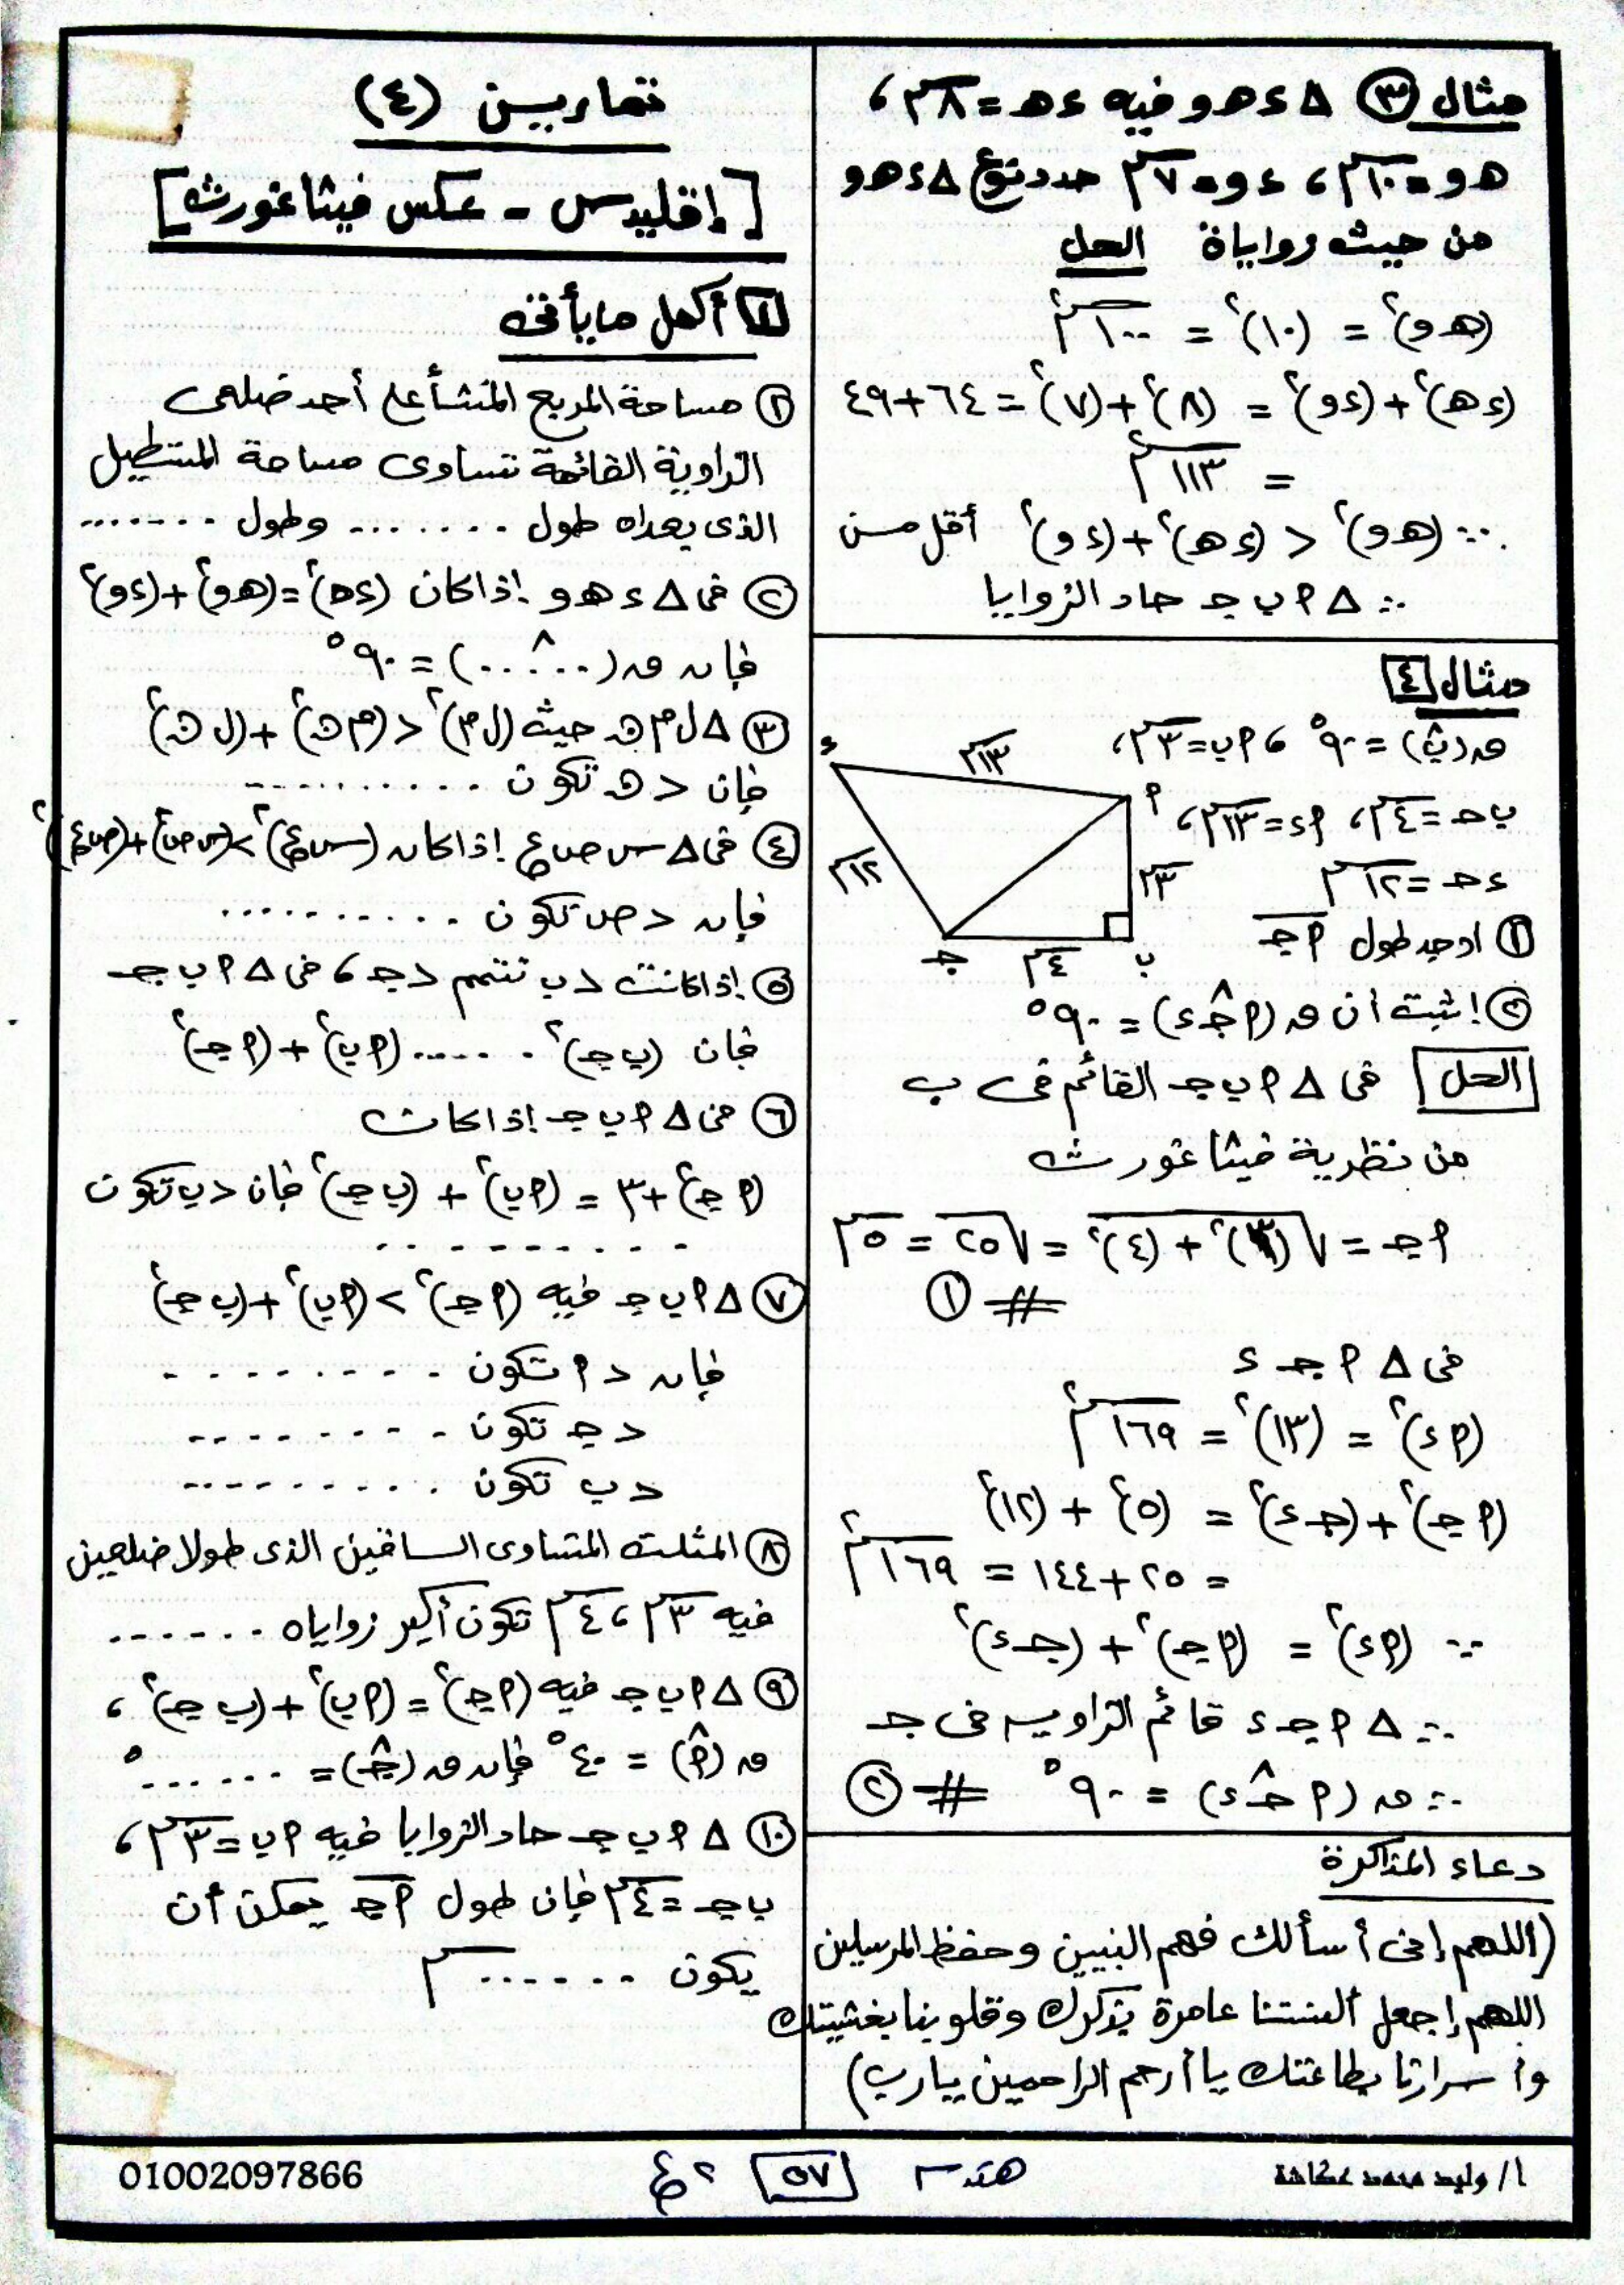 مثال ٣ △ ء هـ و فيه ء هـ = ٨ سم ،
هـ و = ١٠ سم ، ء و = ٧ سم حدد نوع △ ء هـ و
من حيث زواياه الحل
(هـ و)² = (١٠)² = ١٠٠ سم²
(ء هـ)² + (ء و)² = (٨)² + (٧)² = ٦٤ + ٤٩
= ١١٣ سم²
∵ (هـ و)² < (ء هـ)² + (ء و)² أقل من
∴ △ ٢ ب جـ حاد الزوايا
مثال ٤
ق(بَ) = ٩٠° ، ٢ب = ٣ سم ،
ب جـ = ٤ سم ، ٢ء = ١٣ سم ،
ء جـ = ١٢ سم
١ اوجد طول ٢جـ
٢ اثبت أن ق(٢ جـَ ء) = ٩٠°
ء
١٣ سم
٢
١٢ سم
٣ سم
جـ
٤ سم
ب
الحل فى △ ٢ ب جـ القائم فى ب
من نظرية فيثاغورث
٢ جـ = √(٣)² + (٤)² = √٢٥ = ٥ سم
# ١
فى △ ٢ جـ ء
(٢ ء)² = (١٣)² = ١٦٩ سم²
(٢ جـ)² + (جـ ء)² = (٥)² + (١٢)²
= ٢٥ + ١٤٤ = ١٦٩ سم²
∵ (٢ء)² = (٢ جـ)² + (جـ ء)²
∴ △ ٢ جـ ء قائم الزاوية فى جـ
∴ ق(٢ جـَ ء) = ٩٠° # ٢
دعاء المذاكرة
(اللهم إنى أسألك فهم النبيين وحفظ المرسلين
اللهم إجعل ألسنتنا عامرة بذكرك وقلوبنا بخشيتك
وأسرارنا بطاعتك يا أرحم الراحمين يارب)
تمارين (٤)
[إقليدس - عكس فيثاغورث]
١ أكمل ما يأتى
١ مساحة المربع المنشأ على أحد ضلعى
الزاوية القائمة تساوى مساحة المستطيل
الذى بعداه طول ........ وطول .......
٢ فى △ ء هـ و إذا كان (ء هـ)² = (هـ و)² + (ء و)²
فإن ق(..^...) = ٩٠°
٣ △ ل م ن حيث (ل م)² < (م ن)² + (ل ن)²
فإن د ن تكون ..........
٤ فى △ س ص ع إذا كان (س ع)² > (س ص)² + (ص ع)²
فإن د ص تكون ..........
٥ إذا كانت د ب تتمم د جـ ، فى △ ٢ ب جـ
فإن (ب جـ)² ...... (٢ ب)² + (٢ جـ)²
٦ فى △ ٢ ب جـ إذا كان
(٢ جـ)² + ٣ = (٢ ب)² + (ب جـ)² فإن د ب تكون
..........
٧ △ ٢ ب جـ فيه (٢ جـ)² > (٢ ب)² + (ب جـ)²
فإن د ٢ تكون .........
د جـ تكون ........
د ب تكون .........
٨ المثلث المتساوى الساقين الذى طولا ضلعين
فيه ٣ سم ، ٤ سم تكون أكبر زواياه ......
٩ △ ٢ ب جـ فيه (٢ جـ)² = (٢ ب)² + (ب جـ)² ،
ق(٢َ) = ٤٠° فإن ق(جـَ) = ......°
١٠ △ ٢ ب جـ حاد الزوايا فيه ٢ ب = ٣ سم ،
ب جـ = ٤ سم فإن طول ٢جـ يمكن أن
يكون ...... سم
أ/ وليد محمد عكاشة هندسة ٥٧ ٢ع 01002097866